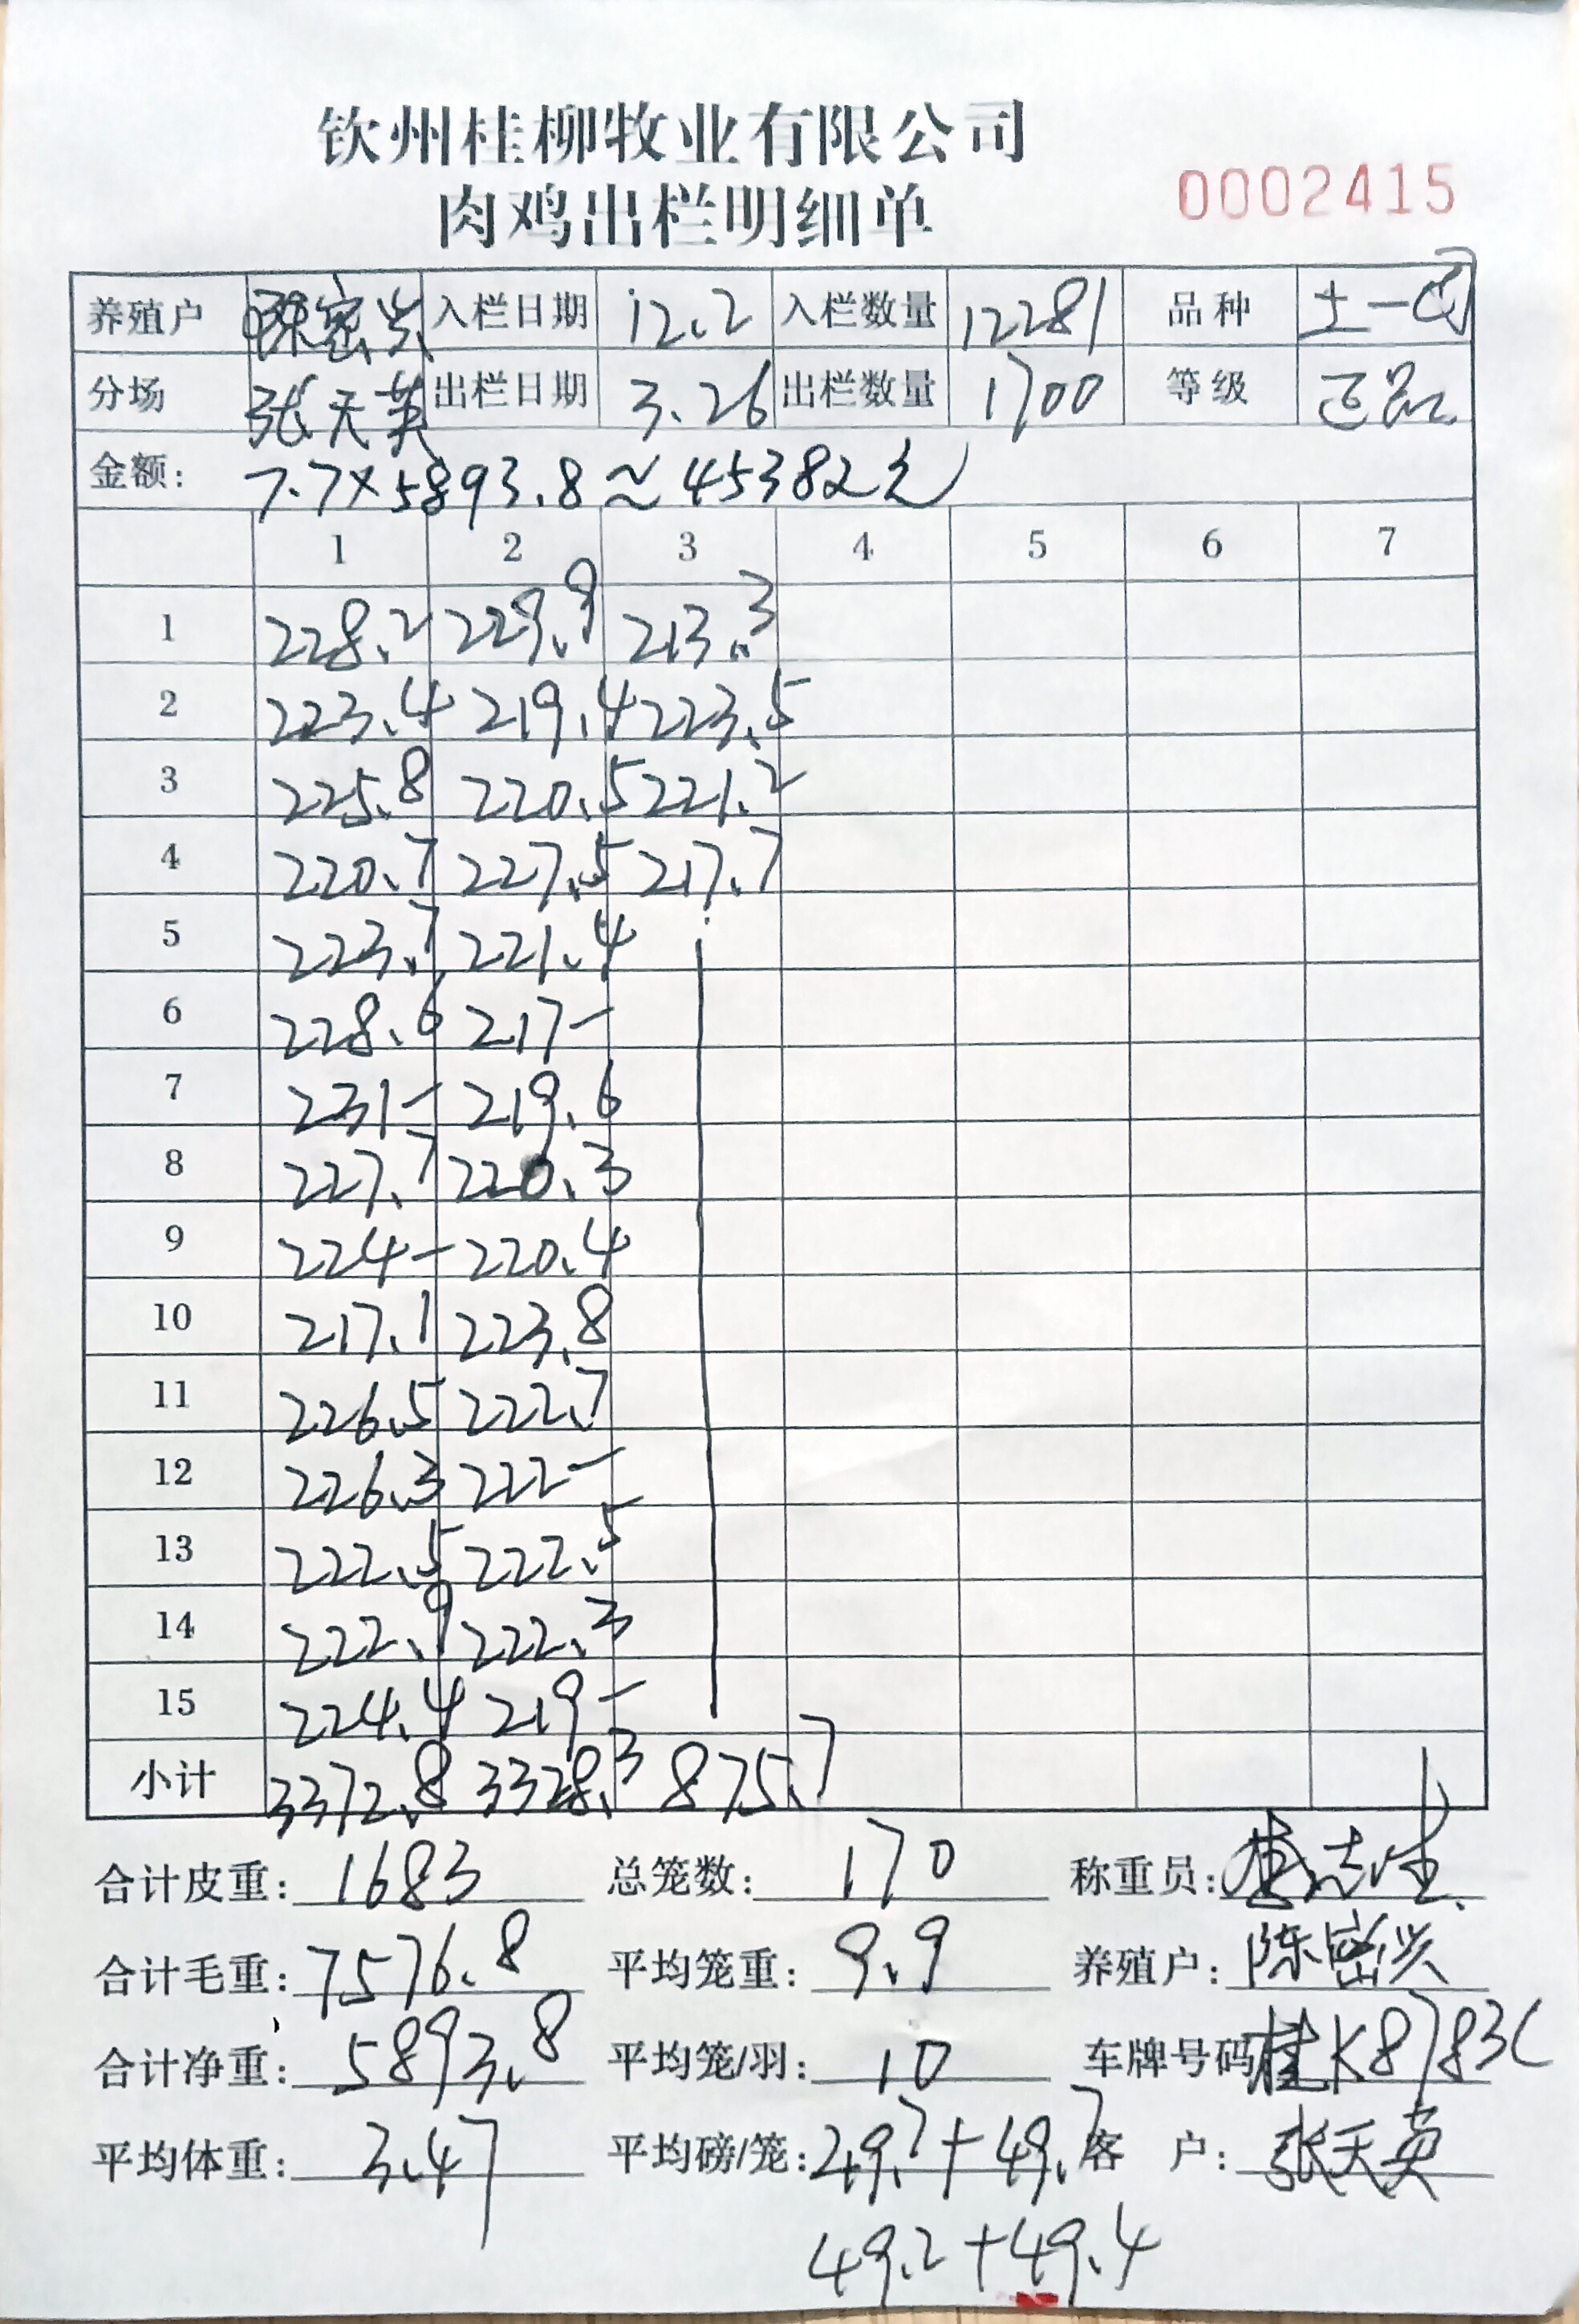 钦州桂柳牧业有限公司
肉鸡出栏明细单
0002415
养殖户 陈密兴 入栏日期 12.2 入栏数量 12281 品种 土一
分场 张天英 出栏日期 3.26 出栏数量 1700 等级 正品
金额: 7.7×5893.8≈45382元
1 2 3 4 5 6 7
1 228.2 229.9 213.3
2 223.4 219.4 223.5
3 225.8 220.5 221.2
4 220.7 227.5 217.7
5 223.7 221.4
6 228.6 217-
7 231- 219.6
8 227.7 220.3
9 224- 220.4
10 217.1 223.8
11 226.5 222.7
12 226.3 222-
13 222.5 222.5
14 222.9 222.3
15 224.4 219-
小计 3372.8 3328.3 875.7
合计皮重: 1683 总笼数: 170 称重员:
合计毛重: 7576.8 平均笼重: 9.9 养殖户: 陈密兴
合计净重: 5893.8 平均笼/羽: 10 车牌号码 桂K8783
平均体重: 3.47 平均磅/笼: 49.7+49.7 客 户: 张天英
49.2+49.4